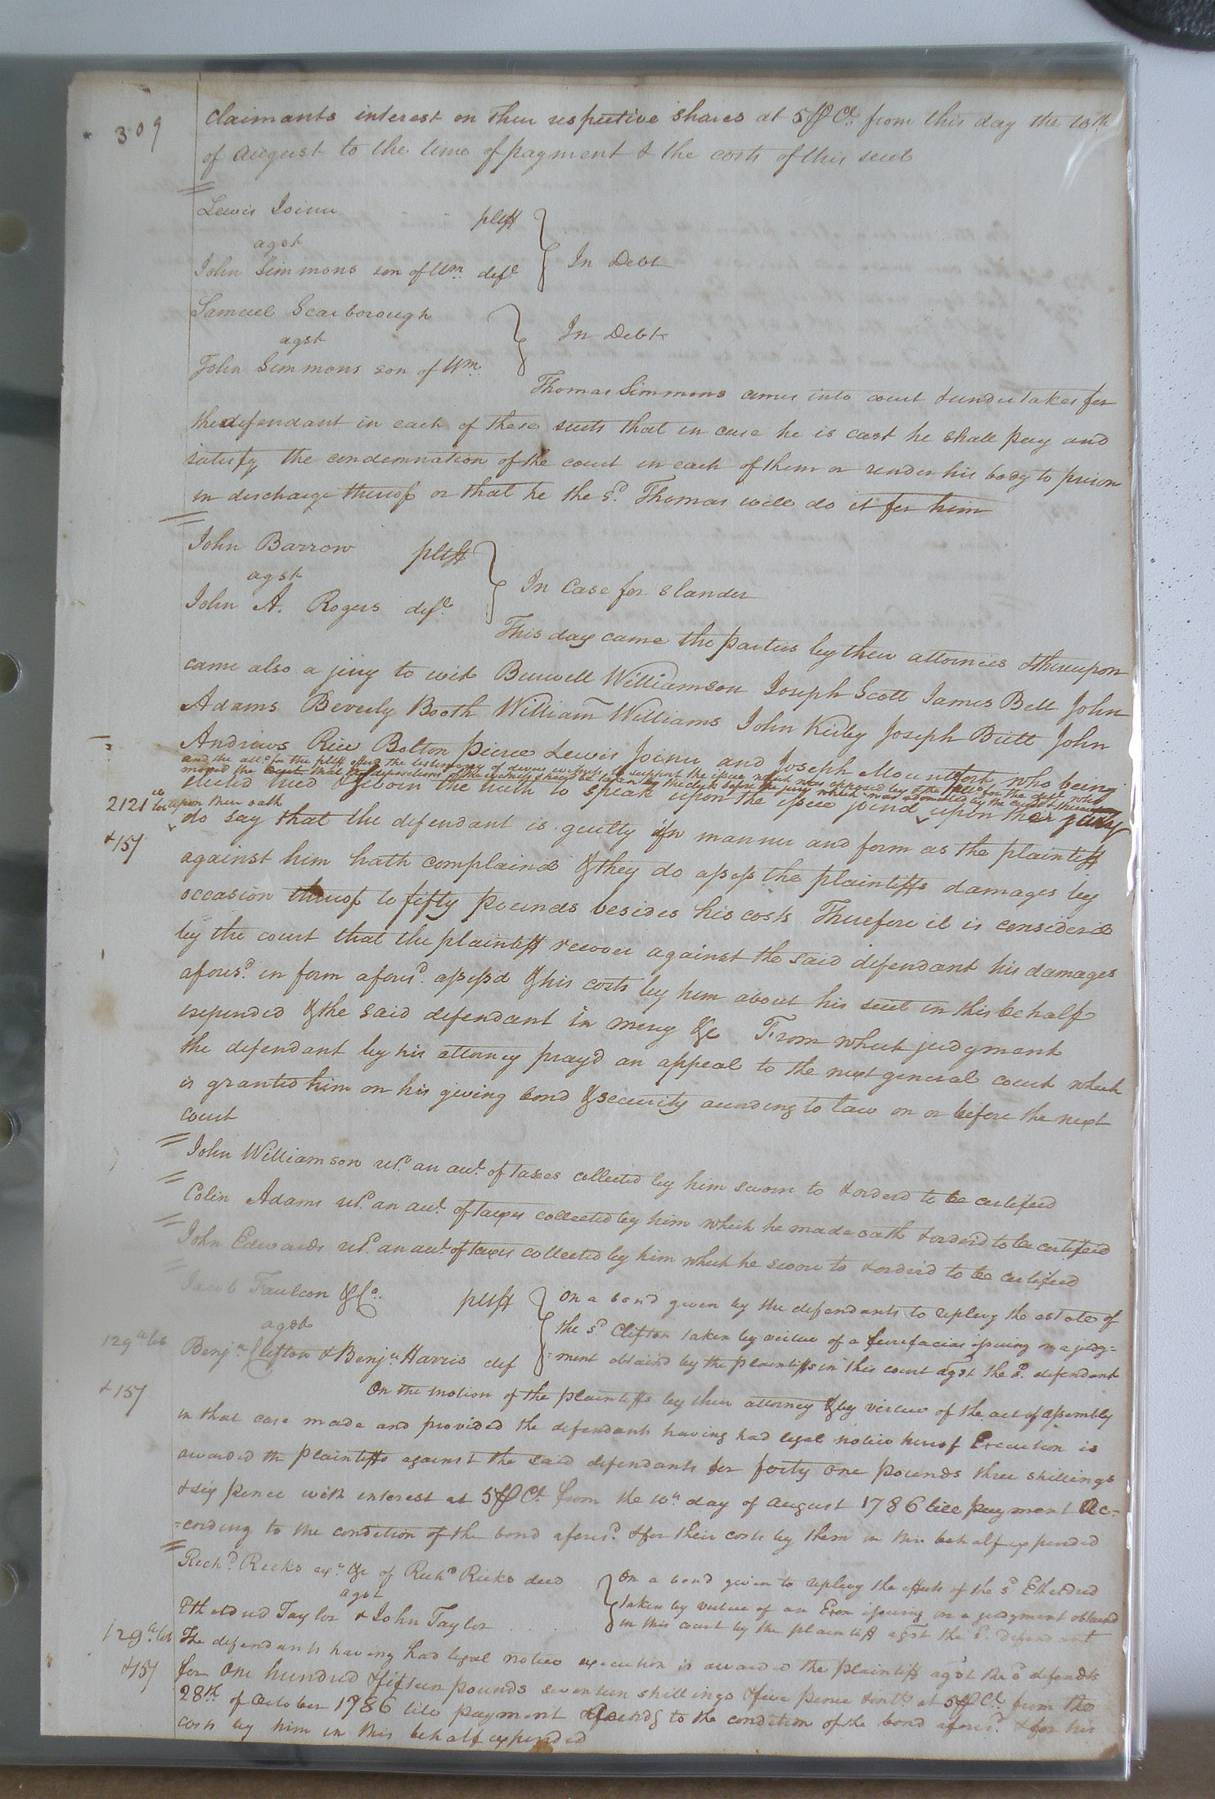 309
claimants interest on their respective shares at 5 P Ct. from this day the 10th
of august to the time of payment & the costs of this suit
Lewis Joiner pltff
agst
John Simmons son of Wm. deft
In Debt
Samuel Scarborough
agst
John Simmons son of Wm.
In Debt
Thomas Simmons comes into court & undertakes for
the defendant in each of these suits that in case he is cast he shall pay and
satisfy the condemnation of the court in each of them or render his body to prison
in discharge thereof or that he the sd. Thomas will do it for him
John Barrow pltff
agst
John A. Rogers deft.
In Case for slander
This day came the parties by their attornies & thereupon
came also a jury to wit Burwell Williamson Joseph Scott James Bell John
Adams Beverly Booth William Williams John Kirby Joseph Britt John
Andrews Rice Bolton pierce Lewis Joiner and Joseph Mountfort who being
and the atto. for the pltff after the testimony of divers to support the issue
moved the court that the depositions of the before the jury which was admitted by the court
elected tried & sworn the truth to speak upon the issue joined upon their
2121 lb. upon their oath
do say that the defendant is guilty in manner and form as the plaintiff
& 15/
against him hath complained & they do assess the plaintiffs damages by
occasion thereof to fifty pounds besides his costs Therefore it is considered
by the court that the plaintiff recover against the said defendant his damages
aforesd. in form aforesd. assessd & his costs by him about his suit in this behalf
expended & the said defendant in mercy &c From which judgment
the defendant by his attorney pray'd an appeal to the next general court which
is granted him on his giving bond & security according to law on or before the next
court
John Williamson retd. an acct. of taxes collected by him sworn to & orderd to be certified
Colin Adams retd. an acct. of taxes collected by him which he made oath & orderd to be certified
John Edwards retd. an acct. of taxes collected by him which he swore to & orderd to be certified
Jacob Faulcon & Co. pltff
agst
129 lb Benjn. Clifton & Benjn. Harris def
On a bond given by the defendants to replevy the estate of
the sd. Clifton taken by virtue of a fierefacias issuing on a judg=
=ment obtained by the plaintiffs in this court agst the sd. defendant
& 15/
On the motion of the plaintiffs by their attorney & by virtue of the act of assembly
in that case made and provided the defendants having had legal notice hereof Execution is
awarded the plaintiffs against the said defendants for forty one pounds three shillings
& six pence with interest at 5 P Ct. from the 10th. day of august 1786 till payment ac=
=cording to the condition of the bond aforesd. & for their costs by them in this behalf expended
Richd. Ricks exr. &c of Richd Ricks decd
agst
Etheldred Taylor & John Taylor
On a bond given to replevy the effects of the sd. Etheldred
taken by virtue of an Exon issuing on a judgment obtained
in this court by the plaintiff agst the sd. defendant
129 lb The defendants having had legal notice execution is awarded the plaintiff agst the sd defendts
& 15/ for One hundred & fifteen pounds seventeen shillings & five pence & intt. at 5 P Ct. from the
28th. of October 1786 till payment according to the condition of the bond aforesd. & for his
costs by him in this behalf expended